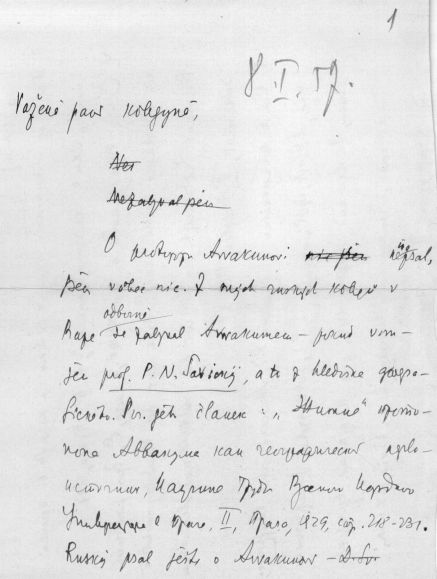 1
8 II. 57.
Vážená paní kolegyně,
Ne
Nezabýval jsem
O protopopu Avvakumovi nic jsem nepsal,
jsem vůbec nic. Z mých ruských kolegů v
odborně
Praze se zabýval Avvakumem – pokud vím –
jen prof. P. N. Savickij, a to z hlediska geogra-
fického. Srv. jeho članek: „Житие" прото-
попа Аввакума как географический перво-
источник, Научные Труды Русского Народного
Университета в Праге, II, Прага, 1929, стр. 218-231.
Ruský psal ještě o Avvakumovi –